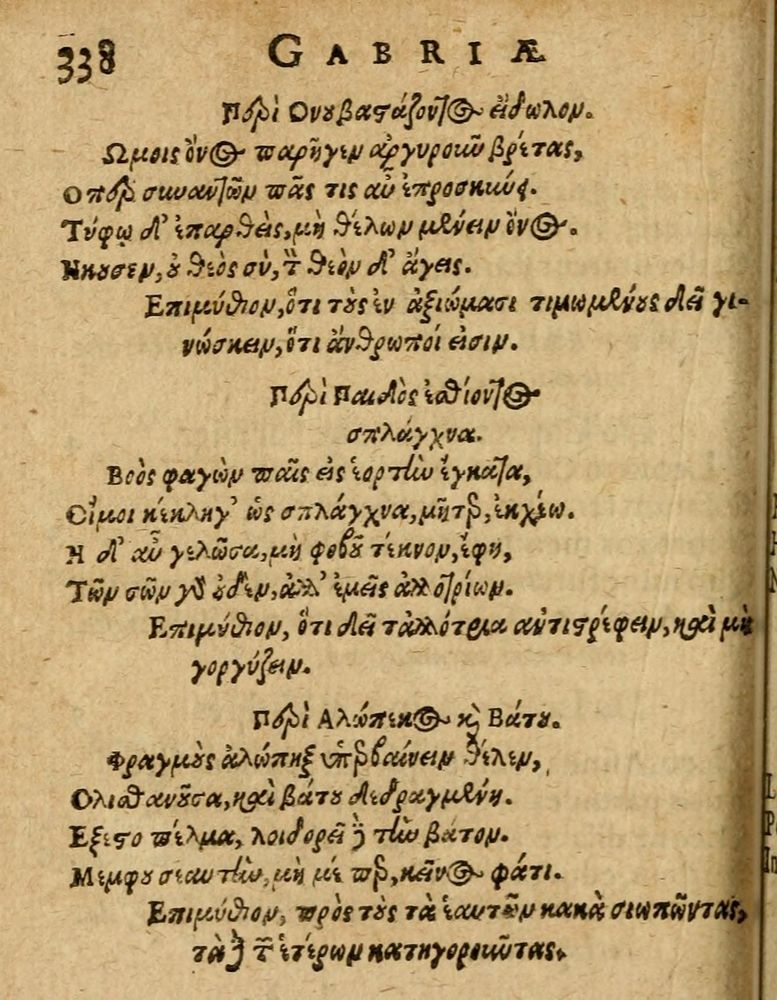 338 GABRIÆ
Περὶ Ονου βαστάζοντος εἴδωλον.
Ωμοις ὄνος παρῆγεν ἀργυροῦν βρέτας,
Οπερ συναντῶν πᾶς τις αὖ ἐπροσκύνει.
Τύφῳ δ' ἐπαρθεὶς, μὴ θέλων μένειν ὄνος.
Ηκουσεν, οὐ θεὸς σὺ, τὸν θεὸν δ' ἄγεις.
Επιμύθιον, ὅτι τοὺς ἐν ἀξιώμασι τιμωμένους δεῖ γι-
νώσκειν, ὅτι ἄνθρωποί εἰσιν.
Περὶ Παιδὸς ἐσθίοντος
σπλάγχνα.
Βοὸς φαγὼν παῖς εἰς ἑορτὴν ἔγκατα,
Οἴμοι κέκληγ' ὡς σπλάγχνα, μῆτερ, ἐκχέω.
Η δ' αὖ γελῶσα, μὴ φοβοῦ τέκνον, ἔφη,
Τῶν σῶν γὰρ οὐδὲν, ἀλλ' ἐμεῖς ἀλλοτρίων.
Επιμύθιον, ὅτι δεῖ τἀλλότρια ἀντιστρέφειν, καὶ μὴ
γογγύζειν.
Περὶ Αλώπεκος καὶ Βάτου.
Φραγμοὺς ἀλώπηξ ὑπερβαίνειν θέλεν,
Ολισθανοῦσα, καὶ βάτου δεδραγμένη.
Εξεστο πέλμα, λοιδορεῖ δὲ τὴν βάτον.
Μέμφου σεαυτὴν, μὴ μέ περ, κεῖνος φάτι.
Επιμύθιον, πρὸς τοὺς τὰ ἑαυτῶν κακὰ σιωπῶντας,
τὰ δὲ τῶν ἑτέρων κατηγοροῦντας.